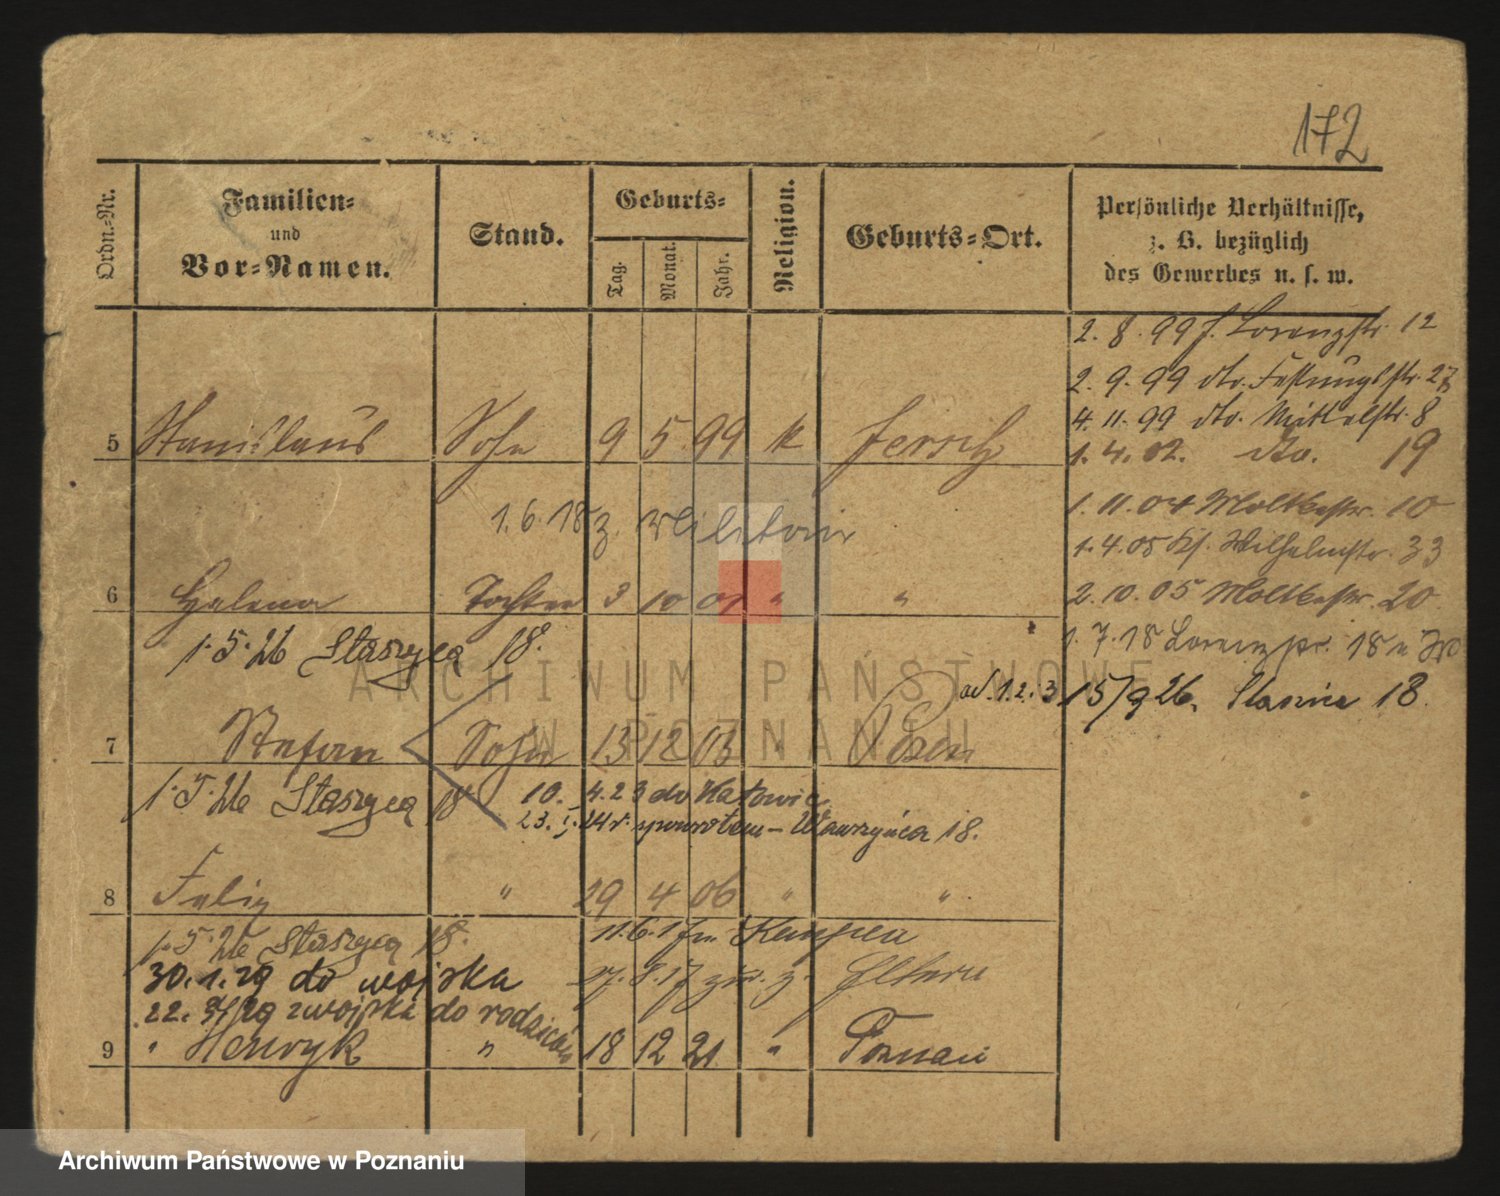 172
Ordn.-Nr.
Familien-
und
Vor-Namen.
Stand.
Geburts-
Tag.
Monat.
Jahr.
Religion.
Geburts-Ort.
Persönliche Verhältnisse,
z. B. bezüglich
des Gewerbes u. s. w.
2. 8. 99 J. Lorenzstr. 12
2. 9. 99 dto. Festungsstr. 27
4. 11. 99 dto. Mittelstr. 8
5 Stanislaus Sohn 9 5 99 k Jersitz
1. 4. 02. dto. 19
1. 11. 04 Moltkestr. 10
1. 6. 18 z. Militair
1. 4. 05 Ks. Wilhelmstr. 33
6 Helena Tochter 3 10 01 " "
2. 10. 05 Moltkestr. 20
1. 7. 18 Lorenzstr. 18
1. 5. 26 Staszyca 18.
od. 1. 2. 3 15/9 26. Staszica 18.
ARCHIWUM PAŃSTWOWE
W POZNANIU
7 Stefan Sohn 13 12 03 " Posen
1. 5. 26 Staszyca 18
10. 4. 23 do Katowic
23. 1. 24 r. spowrotem - Wawrzyńca 18.
8 Felix " 29 4 06 " "
1. 5. 26 Staszyca 18.
11. 6. 17 Kempen
30. 1. 29 do wojska
27. 8. 17 zur. z. Eltern
22. 29 z wojska do rodziców
9 " Henryk " 18 12 21. " Poznań
Archiwum Państwowe w Poznaniu